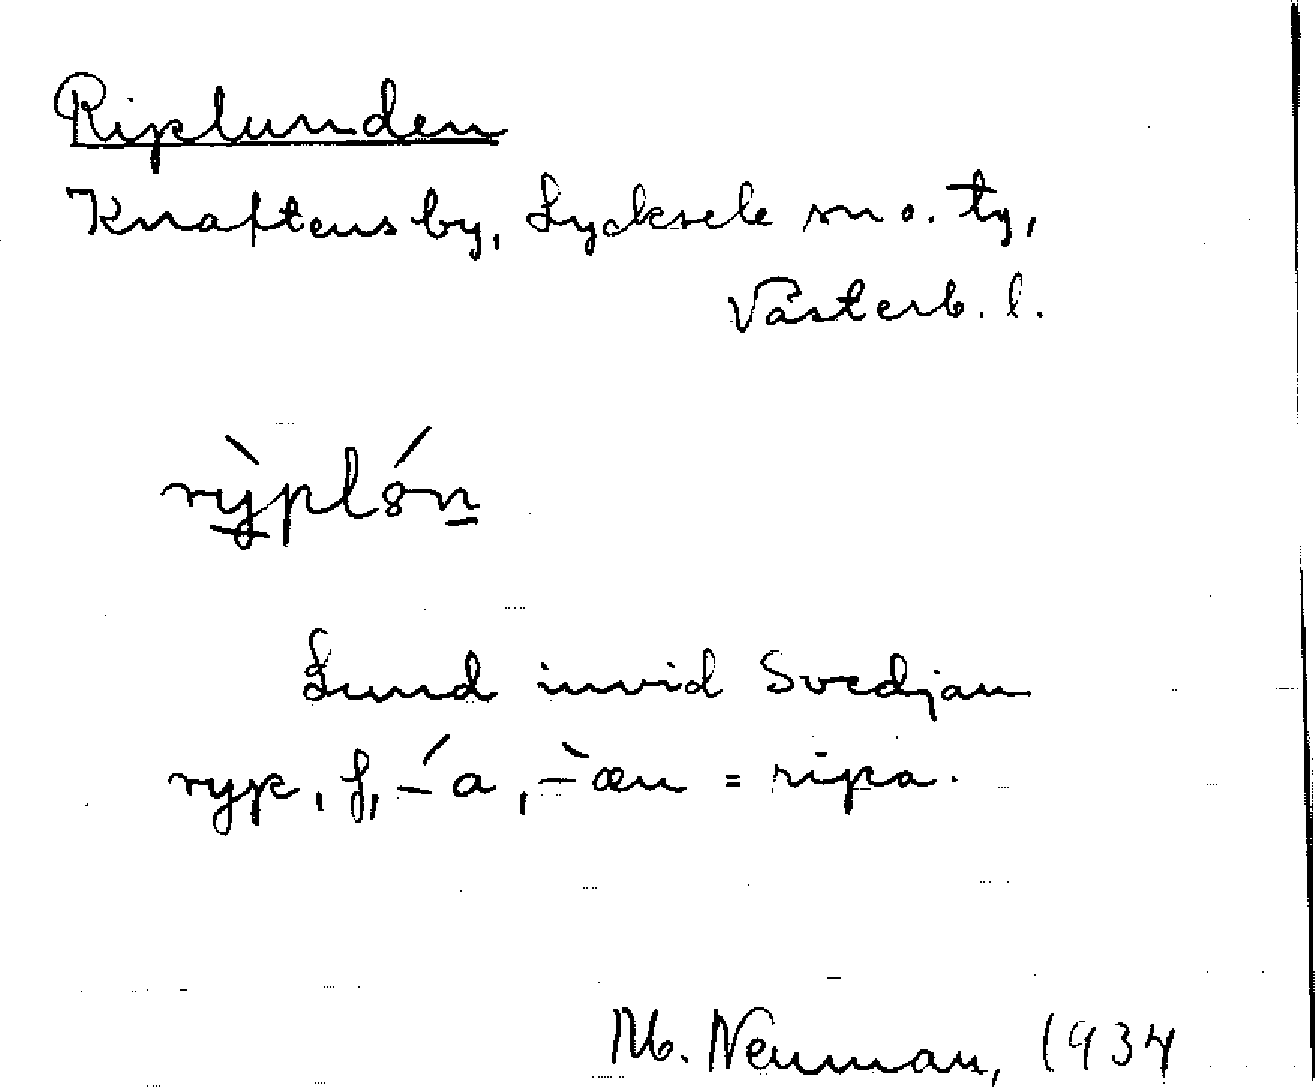 Riplunden
Knaftens by, Lycksele sn o. tg,
Västerb. l.
rỳplón
Lund invid Svedjan
ryp, f, –́a, –̀æn = ripa.
M. Neuman, 1934